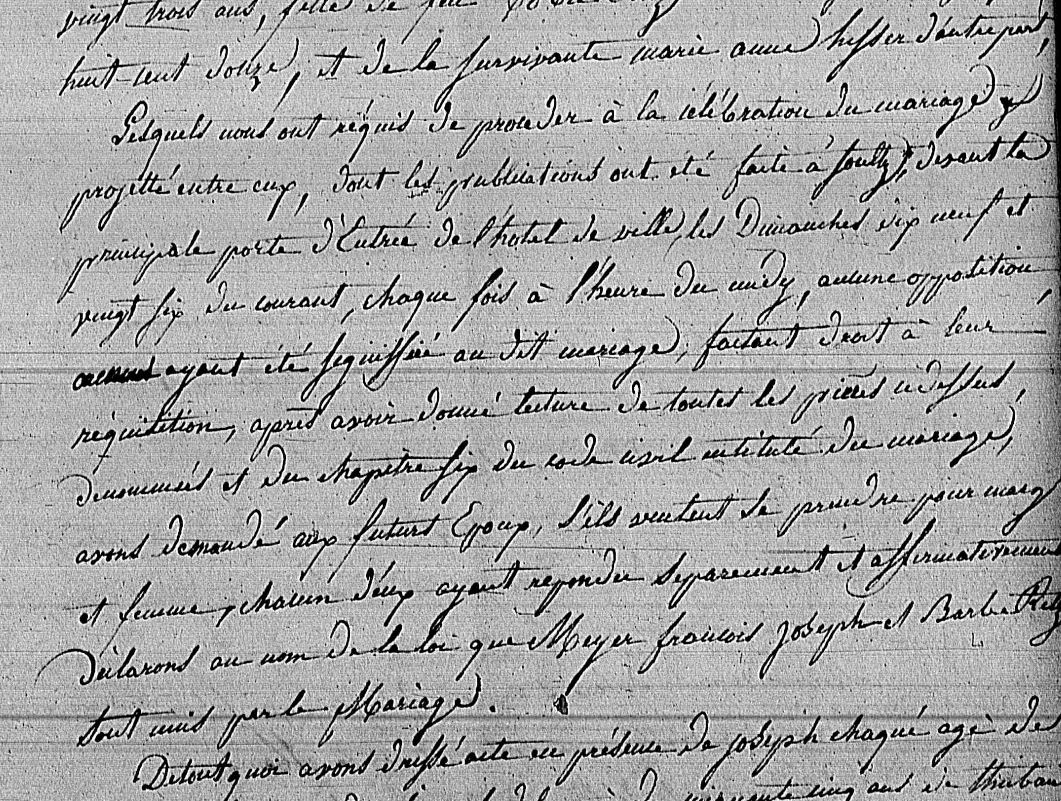 vingt trois ans, fille de feu
huit cent douze, et de la survivante marie anne hisser d'autre part,
Lesquels nous ont réquis de proceder à la célébration du mariage
projetté entre eux, dont les publications ont été faite à soultz, devant la
principale porte d'Entrée de l'hotel de ville, les Dimanches dix neuf et
vingt six du courant, chaque fois à l'heure du midy, aucune opposition
ayant été signiffiée au dit mariage, faisant droit à leur
réquisition, après avoir donné lecture de toutes les pièces cidessus,
denommées et du chapitre six du code civil intitulé du mariage,
avons demandé aux futurs Epoux, s'ils veulent se prendre pour mary
et femme, chacun d'eux ayant repondu séparement et affirmativement
Déclarons au nom de la loi que Meyer francois Joseph et Barbe
sont unis par le Mariage.
De tout quoi avons dressé acte en présence de joseph chaqué agé de
cinq ans de